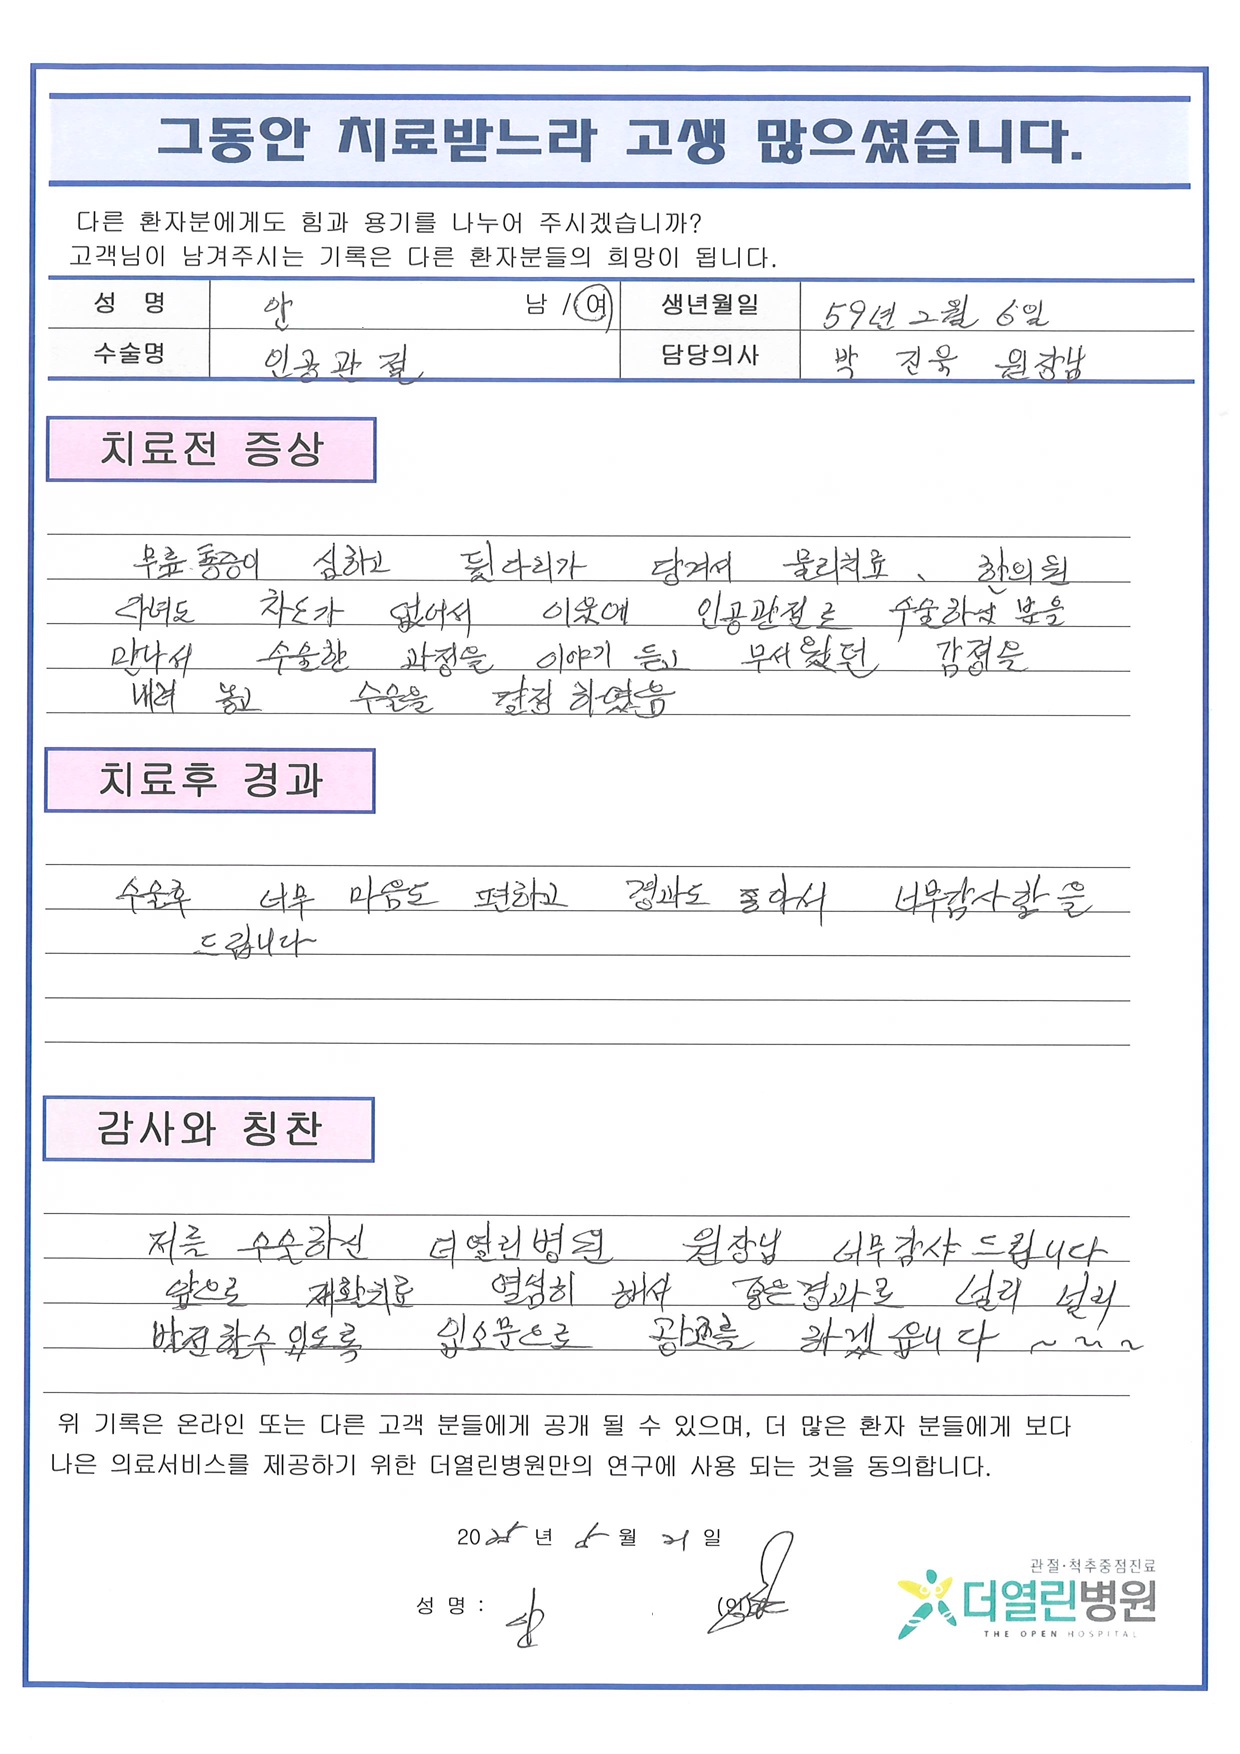 그동안 치료받느라 고생 많으셨습니다.
다른 환자분에게도 힘과 용기를 나누어 주시겠습니까?
고객님이 남겨주시는 기록은 다른 환자분들의 희망이 됩니다.
성 명 안 남 / 여 생년월일 59년 2월 6일
수술명 인공관절 담당의사 박 진욱 원장님
치료전 증상
무릎통증이 심하고 뒷다리가 당겨서 물리치료、 한의원
다녀도 차도가 없어서 이웃에 인공관절로 수술하신 분을
만나서 수술한 과정을 이야기 듣고 무서웠던 감정을
내려 놓고 수술을 결정 하였음
치료후 경과
수술후 너무 마음도 편하고 경과도 좋아서 너무감사함을
드립니다
감사와 칭찬
저를 수술하신 더열린병원 원장님 너무감사 드립니다
앞으로 재활치료 열심히 해서 좋은경과로 널리 널리
발전할수 있도록 입소문으로 광고를 하겠습니다 ~~~
위 기록은 온라인 또는 다른 고객 분들에게 공개 될 수 있으며, 더 많은 환자 분들에게 보다
나은 의료서비스를 제공하기 위한 더열린병원만의 연구에 사용 되는 것을 동의합니다.
2025년 5월 21일
성 명 : (인)
관절·척추중점진료
더열린병원
THE OPEN HOSPITAL